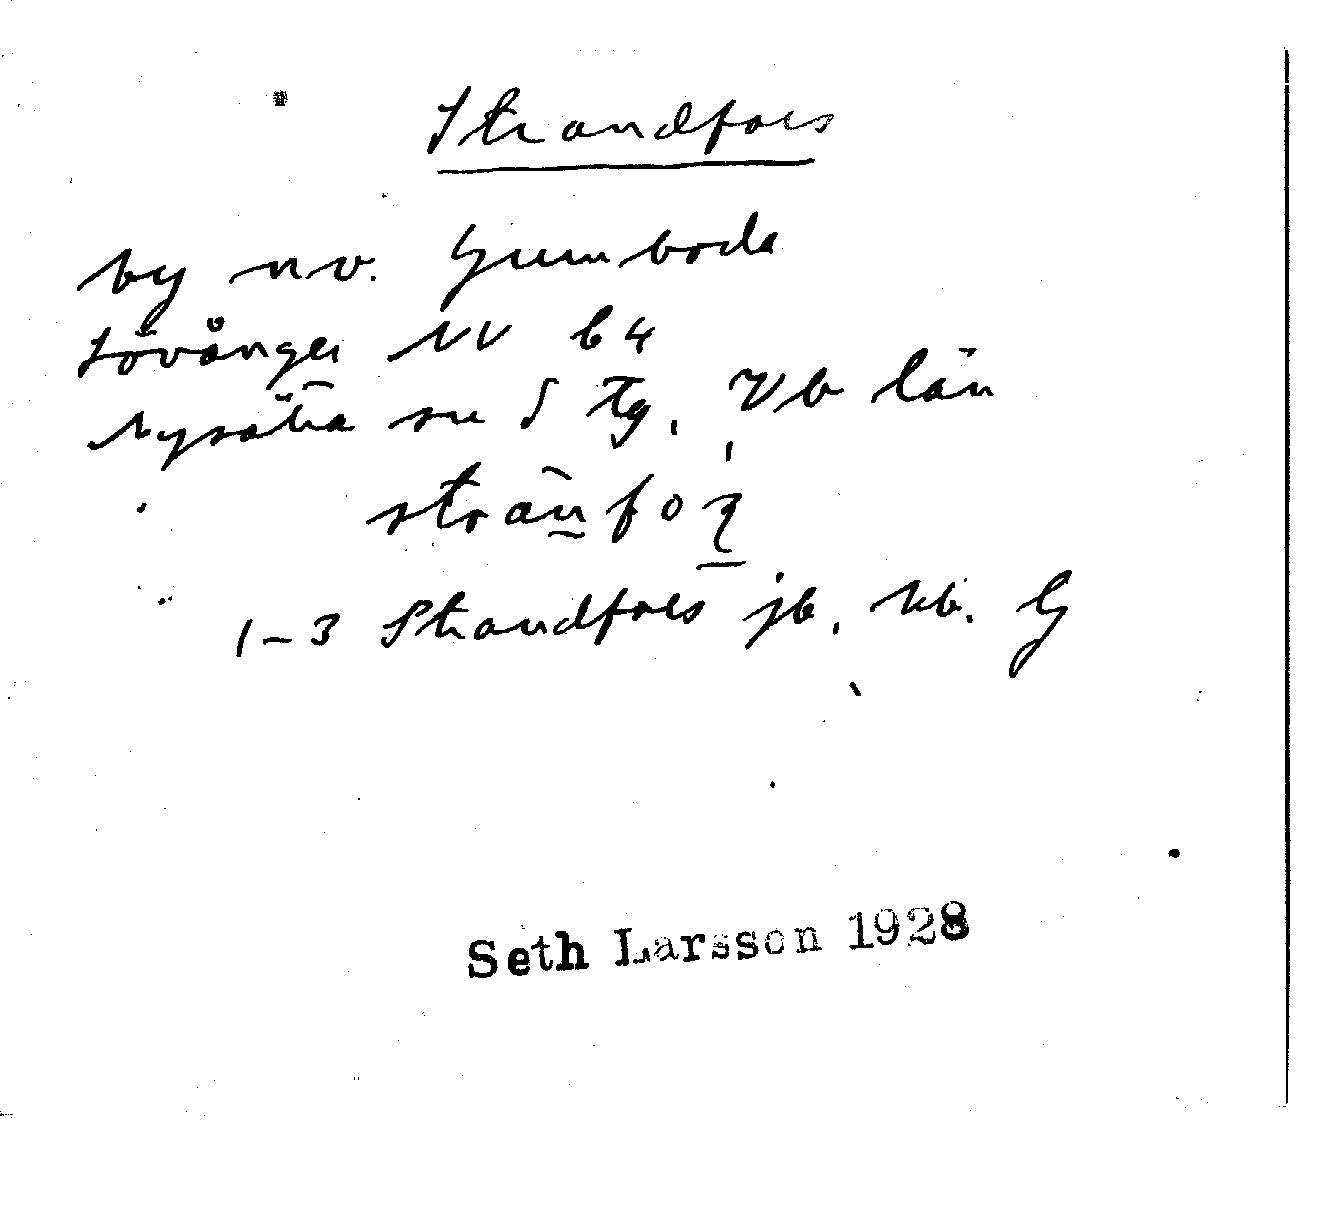 Strandfors
by nv. Gumboda
Lövånger NV b 4
Nysätra sn S Tg, Vb län
1-3 Strandfors jb, kb. G
Seth Larsson 1928